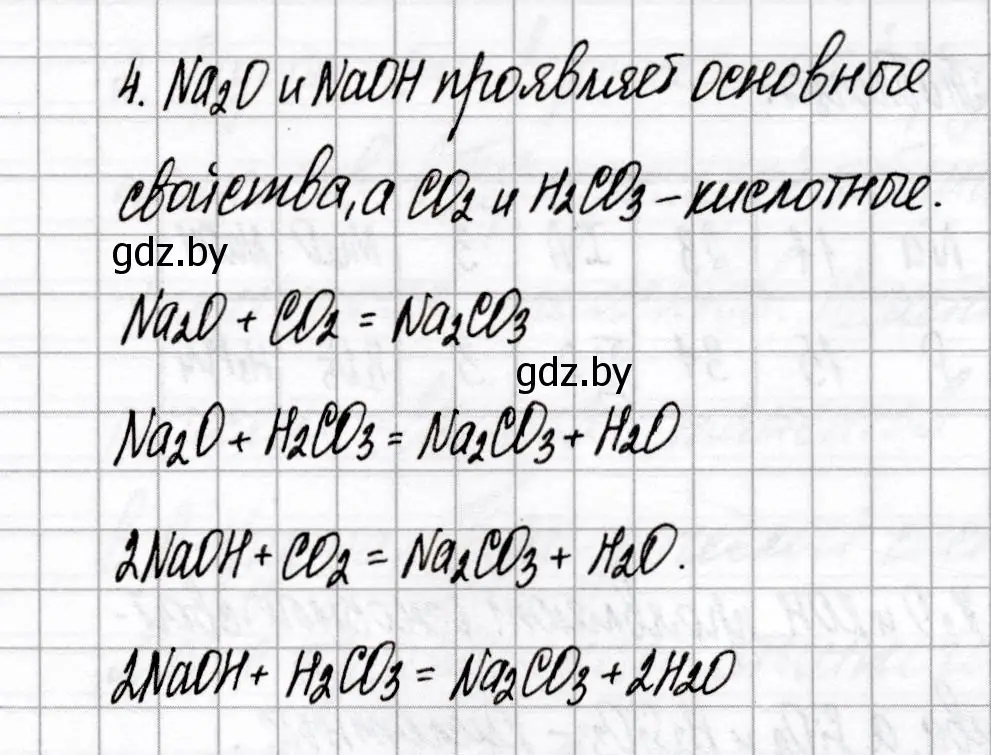 4. Na₂O и NaOH проявляет основные
свойства, а CO₂ и H₂CO₃ – кислотные.
gdz.by
Na₂O + CO₂ = Na₂CO₃
gdz.by
Na₂O + H₂CO₃ = Na₂CO₃ + H₂O
2NaOH + CO₂ = Na₂CO₃ + H₂O.
2NaOH + H₂CO₃ = Na₂CO₃ + 2H₂O